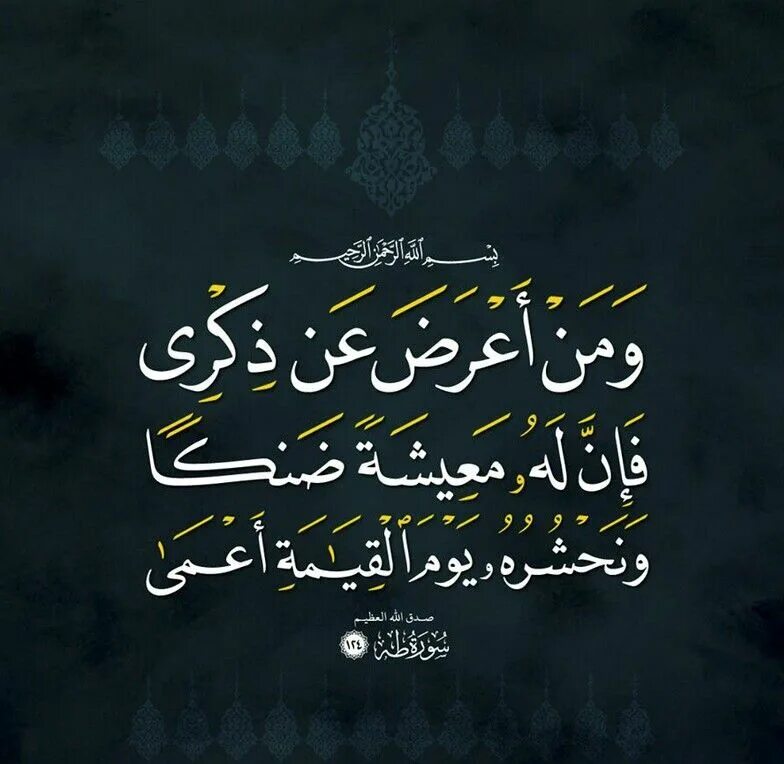 بِسْمِ اللَّهِ الرَّحْمَٰنِ الرَّحِيمِ
وَمَنْ أَعْرَضَ عَن ذِكْرِى
فَإِنَّ لَهُۥ مَعِيشَةً ضَنكًا
وَنَحْشُرُهُۥ يَوْمَ ٱلْقِيَٰمَةِ أَعْمَىٰ
صدق الله العظيم
سُورَةُ طه ١٢٤